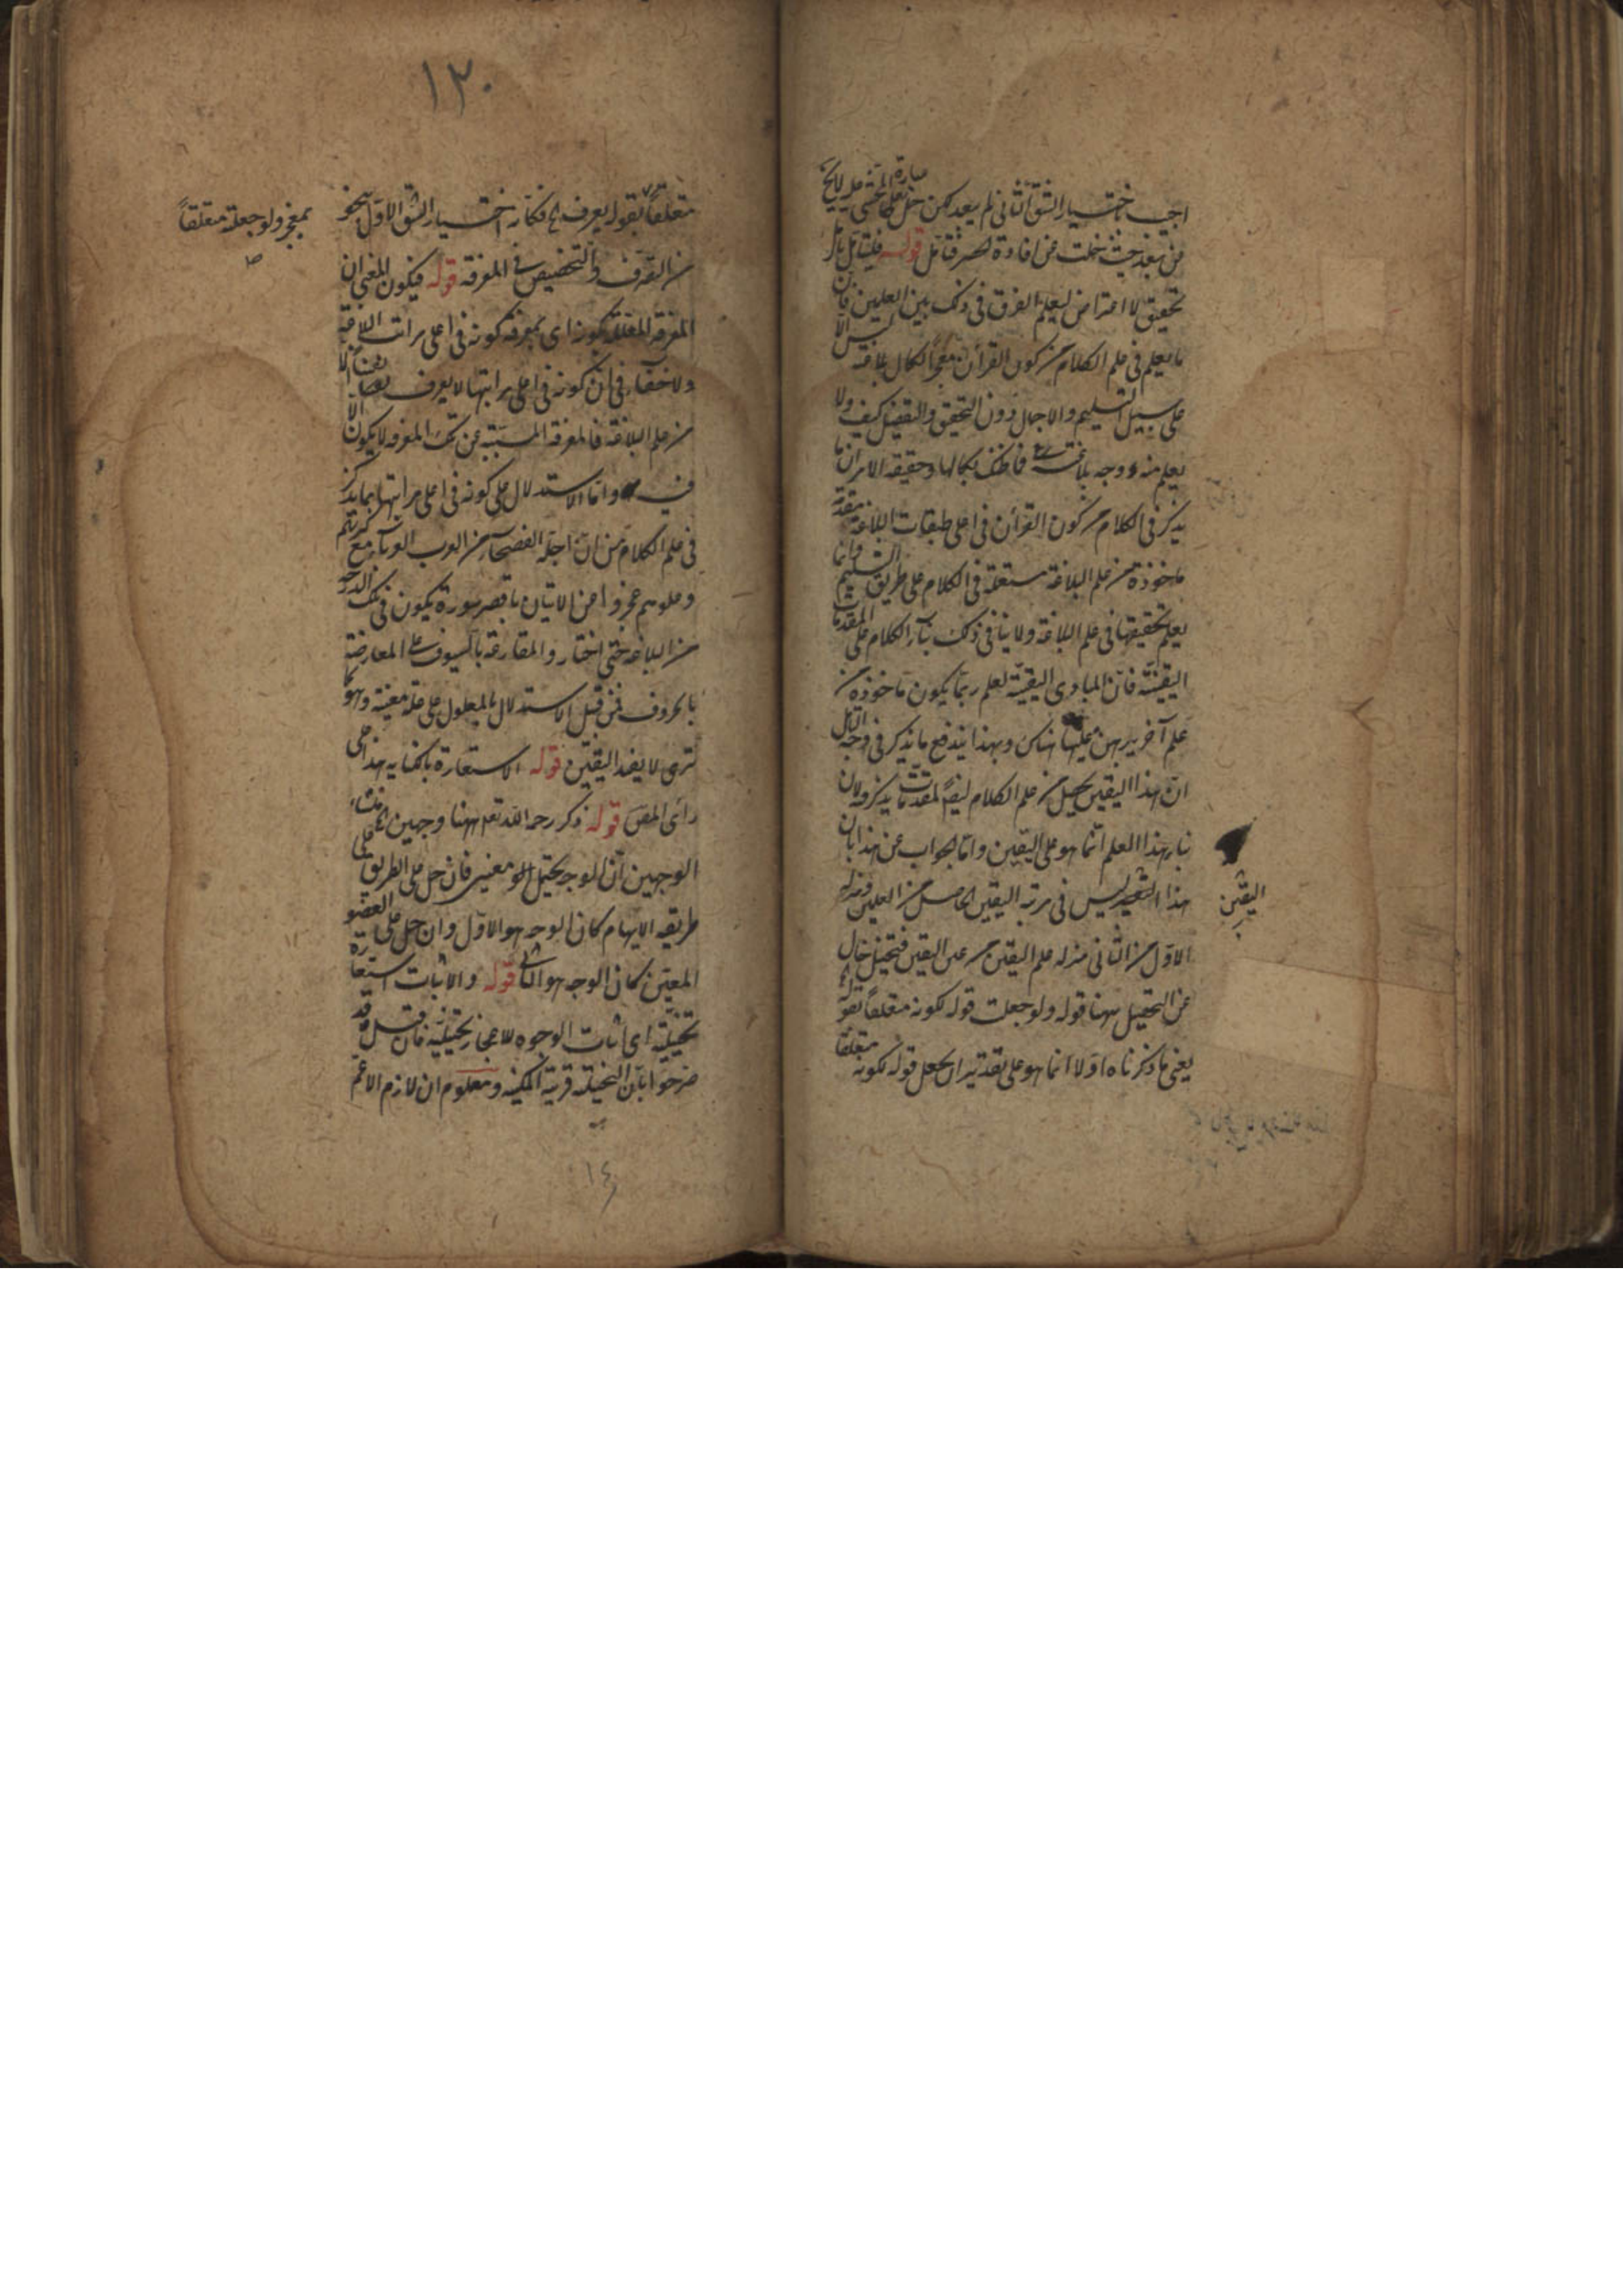 اجيب باختيار الشق الثاني لم يبعد لكن حمل عبارة المحشي عليه لا يخ
من بعد حيث خلت عن افادة الحصر فتأمل قوله فليتأمل
تحقيق لا اعتراض ليعلم الفرق في ذلك بين العلمين فان
ما يعلم في علم الكلام من كون القرآن معجزا لكمال بلاغته ليس الا
على سبيل التسليم والاجمال دون التحقيق والتفصيل كيف ولا
يعلم منه وجه بلاغته فما ظنك بكمالها وحقيقة الامر ان ما
يذكر في الكلام من كون القرآن في اعلى طبقات البلاغة مقدمة
ماخوذة من علم البلاغة مستعملة في الكلام على طريق التسليم وانما
يعلم تحقيقها في علم البلاغة ولا ينافي ذلك بناء الكلام على المقدمات
اليقينية فان المبادي اليقينية لعلم ربما يكون ماخوذة من
علم آخر يبرهن عليها هناك وبهذا يندفع ما يذكر في وجه التأمل
ان هذا اليقين يحصل من علم الكلام ايضا لمقدمات يذكر فيه لان
بناء هذا العلم انما هو على اليقين واما الجواب عن هذا بان
هذا التصديق ليس في مرتبة اليقين الحاصل من العلمين ومنزلة
اليقين
الاول من الثاني منزلة علم اليقين من عين اليقين فتخيل خال
عن التحصيل ههنا قوله ولو جعلت قوله لكونه متعلقا بقوله
يعني ما ذكرناه اولا انما هو على تقدير ان يجعل قوله لكونه متعلقا
١٣٠
متعلقا بقوله يعرف الخ فكأنه اختيار الشق الاول بنحو
بمعجز ولو جعلته متعلقا
صح
من التصرف والتخصيص في المعرفة قوله فيكون المعنى ان
المعرفة المعللة بكونه اي بمعرفة كونه في اعلى مراتب البلاغة
ولا خفاء في ان كونه في اعلى مراتبها لا يعرف ايضا الا
من علم البلاغة فالمعرفة المسببة عن تلك المعرفة لا يكون الا
فيه واما الاستدلال على كونه في اعلى مراتبها بما يذكر
في علم الكلام من ان اجلة الفصحاء من العرب العرباء مع كثرتهم
وعلوهم عجزوا عن الاتيان باقصر سورة يكون في تلك الدرجة
من البلاغة حتى اختاروا المقارعة بالسيوف على المعارضة
بالحروف فمن قبيل الاستدلال بالمعلول على علة معينة وهو كما
ترى لا يفيد اليقين قوله الاستعارة بالكناية هذا على
رأى المصـ قوله ذكر رحمه الله تعـ ههنا وجهين الخ منشاء
الوجهين ان الوجه يحتمل المعنيين فان حمل على الطريق على
طريقة الايهام كان الوجه هو الاول وان حمل على العضو
المعين كان الوجه هو الثاني قوله والاثبات استعارة
تخييلية اي اثبات الوجوه للاعجاز تخييلية فان قيل قد
صرحوا بان التخييلية قرينة المكنية ومعلوم ان لازم الاعم
١٤